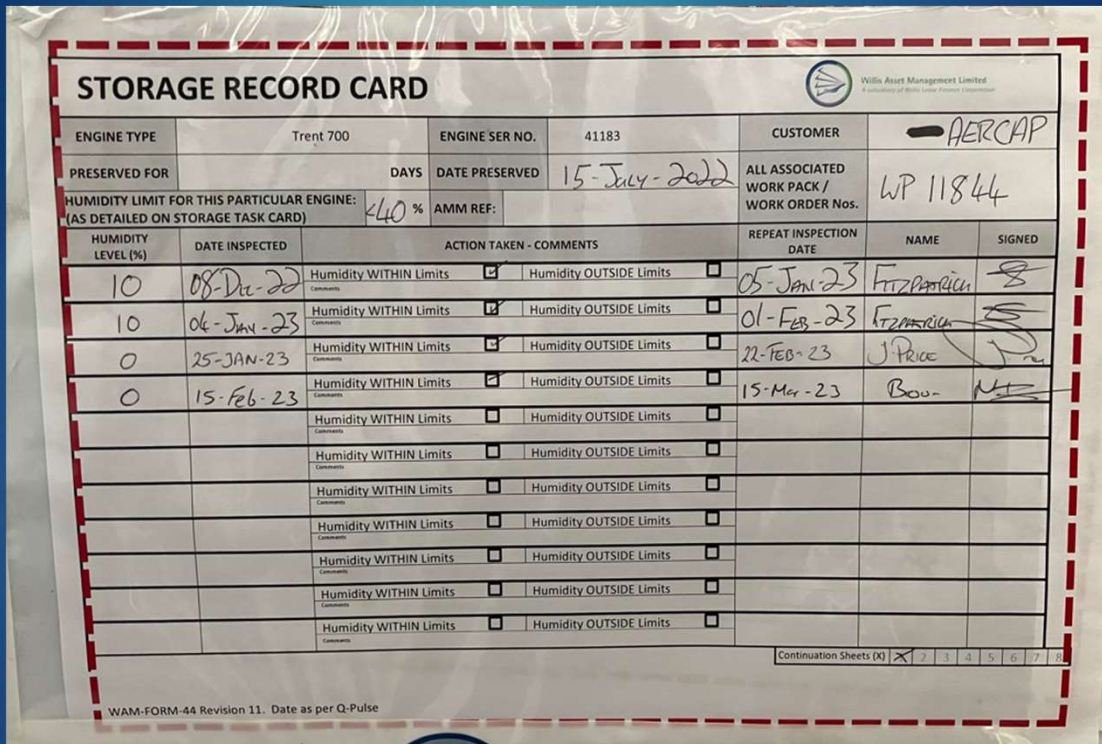 STORAGE RECORD CARD
Willis Asset Management Limited
A subsidiary of Willis Lease Finance Corporation
ENGINE TYPE Trent 700 ENGINE SER NO. 41183 CUSTOMER AERCAP
PRESERVED FOR DAYS DATE PRESERVED 15-July-2022 ALL ASSOCIATED WORK PACK / WORK ORDER Nos. WP 11844
HUMIDITY LIMIT FOR THIS PARTICULAR ENGINE: (AS DETAILED ON STORAGE TASK CARD) <40 % AMM REF:
HUMIDITY LEVEL (%) DATE INSPECTED ACTION TAKEN - COMMENTS REPEAT INSPECTION DATE NAME SIGNED
10 08-Dec-22 Humidity WITHIN Limits Humidity OUTSIDE Limits 05-JAN-23 FITZPATRICK
Comments
10 04-JAN-23 Humidity WITHIN Limits Humidity OUTSIDE Limits 01-FEB-23 FITZPATRICK
Comments
0 25-JAN-23 Humidity WITHIN Limits Humidity OUTSIDE Limits 22-FEB-23 J. PRICE
Comments
0 15-Feb-23 Humidity WITHIN Limits Humidity OUTSIDE Limits 15-Mar-23
Comments
Humidity WITHIN Limits Humidity OUTSIDE Limits
Comments
Humidity WITHIN Limits Humidity OUTSIDE Limits
Comments
Humidity WITHIN Limits Humidity OUTSIDE Limits
Comments
Humidity WITHIN Limits Humidity OUTSIDE Limits
Comments
Humidity WITHIN Limits Humidity OUTSIDE Limits
Comments
Humidity WITHIN Limits Humidity OUTSIDE Limits
Comments
Humidity WITHIN Limits Humidity OUTSIDE Limits
Comments
Continuation Sheets (X) X 2 3 4 5 6 7 8
WAM-FORM-44 Revision 11. Date as per Q-Pulse